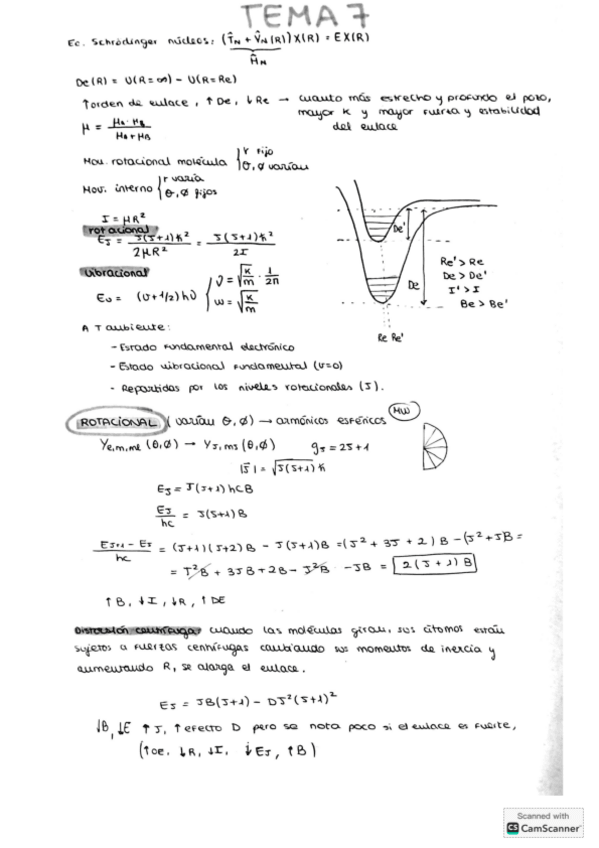 TEMA 7
Ec. Schrödinger núcleos: (T̂N + V̂N(R))X(R) = EX(R)
ĤN
De(R) = U(R=∞) - U(R=Re)
↑orden de enlace, ↑De, ↓Re → cuanto más estrecho y profundo el pozo,
mayor K y mayor fuerza y estabilidad
del enlace
μ = MA·MB / MA+MB
Mov. rotacional molécula { r fijo
θ, φ varían
Mov. interno { r varía
θ, φ fijos
I = μR²
rotacional
EJ = J(J+1)ħ² / 2μR² = J(J+1)ħ² / 2I
vibracional
Ev = (v+1/2)hν { ν = √(K/m) · 1/2π
ω = √(K/m)
De'
De
Re Re'
Re' > Re
De > De'
I' > I
Be > Be'
A T ambiente:
- Estado fundamental electrónico
- Estado vibracional fundamental (v=0)
- Repartidas por los niveles rotacionales (J).
ROTACIONAL (varían θ, φ) → armónicos esféricos MW
Ye,m,me (θ,φ) → YJ,mJ (θ,φ) gJ = 2J+1
|J| = √J(J+1) ħ
EJ = J(J+1)hCB
EJ/hc = J(J+1)B
EJ+1 - EJ / hc = (J+1)(J+2)B - J(J+1)B = (J² + 3J + 2)B - (J² + J)B =
= J²B + 3JB + 2B - J²B - JB = 2(J+1)B
↑B, ↓I, ↓R, ↑DE
Distorsión centrífuga, cuando las moléculas giran, sus átomos están
sujetos a fuerzas centrífugas cambiando sus momentos de inercia y
aumentando R, se alarga el enlace.
EJ = JB(J+1) - DJ²(J+1)²
↓B, ↓E ↑J, ↑efecto D pero se nota poco si el enlace es fuerte,
(↑De, ↓R, ↓I, ↓EJ, ↑B)
Scanned with
CS CamScanner